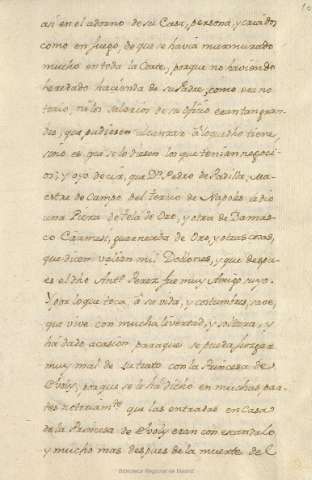 asi en el adorno de su Casa, persona, y criados,
como en juego, de que se havia murmurado
mucho en toda la Corte, porque no haviendo
heredado hacienda de su Padre, como era no
torio, ni los salarios de su oficio eran tan gran
des, que pudiesen alcanzar à lo que dho tiene
sino es que se lo diesen los que tenian negocios
; y oyo decir, que Dn. Pedro de Padilla, Ma
estre de Campo del tercio de Napoles le dio
una Pieza de tela de Oro, y otra de Damas
co Carmesi, guarnecida de Oro, y otras cosas,
que dicen valian mil Doblones, y que despu
es el dho Antº. Perez fue muy Amigo suyo.
Y por lo que toca, à su vida, y costumbres, save,
que vive con mucha livertad, y soltura, y
ha dado ocasion para que se pueda juzgar
muy mal de su trato con la Princesa de
Evoly, porque se le ha dicho en muchas par
tes que las entradas en Casa
de la Princesa de Evoly eran con escandalo
y mucho mas despues de la muerte de l
Biblioteca Regional de Madrid